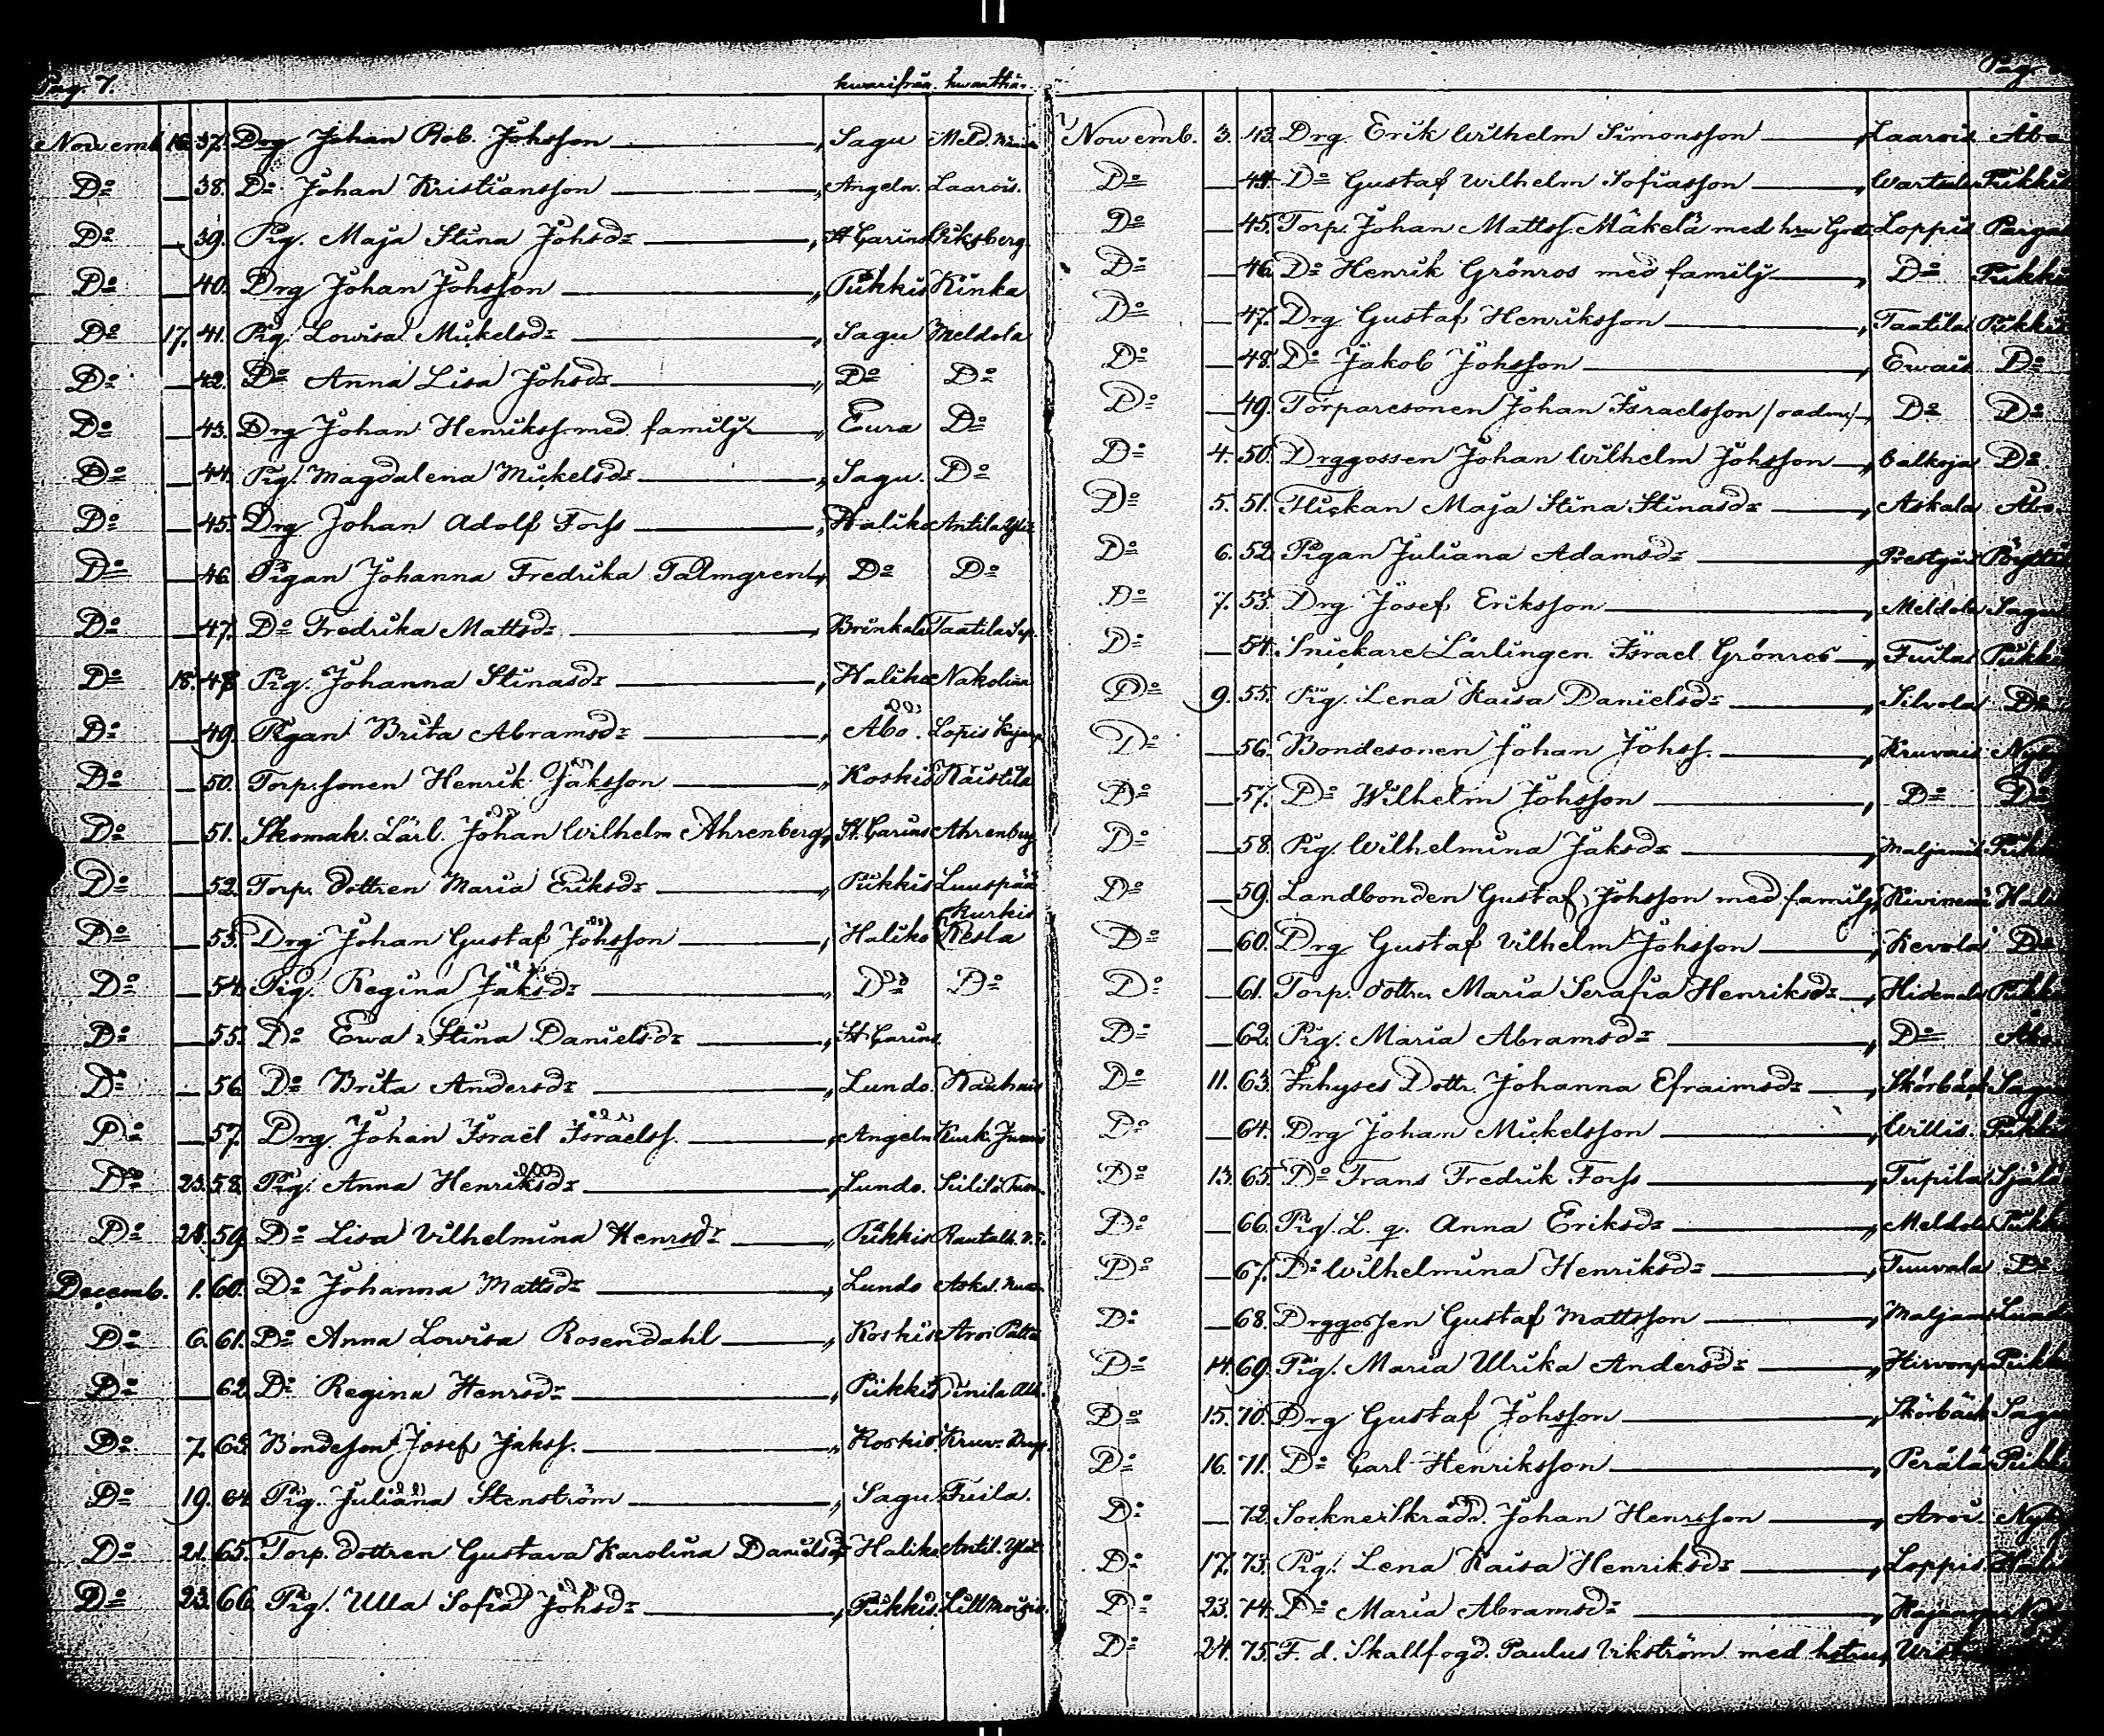 Pag. 7. hwarifrån. hwarthän.
Novemb. 16. 37. Drg Johan Rob. Johsson Sagu Meld.
Do 38. Do Johan Kristiansson Angeln. Laarois.
Do 39. Pig. Maja Stina Johsdr St Carins Wiksberg.
Do 40. Drg Johan Johsson Piikkis Kinka
Do 17. 41. Pig. Lowisa Mickelsdr Sagu Meldola
Do 42. Do Anna Lisa Johsdr Do Do
Do 43. Drg Johan Henrikss. med familj Eura Do
Do 44. Pig. Magdalena Mickelsdr Sagu. Do
Do 45. Drg Johan Adolf Forss Haliko Antila
Do 46. Pigan Johanna Fredrika Palmgren Do Do
Do 47. Do Fredrika Mattsdr Brinkala Taatila
Do 18. 48 Pig. Johanna Stinasdr Haliko Nakolina
Do 49. Pigan Brita Abramsdr Åbo. Lopis
Do 50. Torp.sonen Henrik Jaksson Koskis Raistila
Do 51. Skomak. Lärl. Johan Wilhelm Ahrenberg St. Carins Ahrenberg
Do 52. Torp. dottren Maria Eriksdr Piikkis Luuspää
Do 53. Drg Johan Gustaf Johsson Haliko Kurkis Kesla
Do 54. Pig. Regina Jaksdr Do Do
Do 55. Do Ewa Stina Danielsdr St Carins
Do 56. Do Brita Andersdr Lundo. Kauhais
Do 57. Drg. Johan Israel Israelss. Angeln Kurk.
Do 23. 58. Pig. Anna Henriksdr Lundo.
Do 24. 59. Do Lisa Vilhelmina Henrsdr Piikkis
Decemb. 1. 60. Do Johanna Mattsdr Lundo Askal.
Do 6. 61. Do Anna Lowisa Rosendahl Koskis Aroi
Do 62. Do Regina Henrsdr Piikkis
Do 7. 63. Bondeson Josef Jakss. Koskis. Kruv.
Do 19. 64. Pig. Juliana Stenström Sagu. Fuila.
Do 21. 65. Torp. dottren Gustava Karolina Danielsdr Haliko Antil.
Do 23. 66. Pig. Ulla Sofia Johsdr Piikkis.
Pag.
Novemb. 3. 43. Drg. Erik Wilhelm Simonsson Laarois Åbo
Do 44. Do Gustaf Wilhelm Sofiasson Wartsala Piikkis
Do 45. Torp. Johan Mattss. Mäkelä med hru Loppis Pargas
Do 46. Do Henrik Grönros med familj Do Piikkis
Do 47. Drg Gustaf Henriksson Taatila Piikkis
Do 48. Do Jakob Johsson Ewais Do
Do 49. Torparesonen Johan Israelsson Do Do
Do 4. 50. Drggossen Johan Wilhelm Johsson Calkoja Do
Do 5. 51. Flickan Maja Stina Stinasdr Askala Åbo.
Do 6. 52. Pigan Juliana Adamsdr Prestgård Pöyttis
Do 7. 53. Drg Josef Eriksson Meldola Sagu
Do 54. Snickare Lärlingen Israel Grönros Fuila Piikkis
Do 9. 55. Pig. Lena Kaisa Danielsdr Silvola Do
Do 56. Bondesonen Johan Johss. Kruvais
Do 57. Do Wilhelm Johsson Do Do
Do 58. Pig. Wilhelmina Jaksdr Piikk
Do 59. Landbonden Gustaf Johsson med familj Kiviniemi Hali
Do 60. Drg Gustaf Vilhelm Johsson Kevola Do
Do 61. Torp. dottren Maria Serafia Henriksdr Hidenala Piikk
Do 62. Pig. Maria Abramsdr Do Åbo.
Do 11. 63. Inhyses Dottr. Johanna Efraimsdr Skörbäck Sagu
Do 64. Drg Johan Mickelsson Willis. Piikkis
Do 13. 65. Do Frans Fredrik Forss Tupila Själö
Do 66. Pig. L. q. Anna Eriksdr Meldola Piikk
Do 67. Do Wilhelmina Henriksdr Tuuvala Do
Do 68. Drggossen Gustaf Mattsson Lund
Do 14. 69. Pig. Maria Ulrika Andersdr Piikk
Do 15. 70. Drg Gustaf Johsson Skörbäck Sagu
Do 16. 71. Do Carl Henriksson Perälä Piikk
Do 72. Sockne Skrädd. Johan Henrsson Aroi.
Do 17. 73. Pig. Lena Kaisa Henriksdr Loppis
Do 23. 74. Do Maria Abramsdr
Do 24. 75. F. d. Skallfogd. Paulus Vikström med hstru